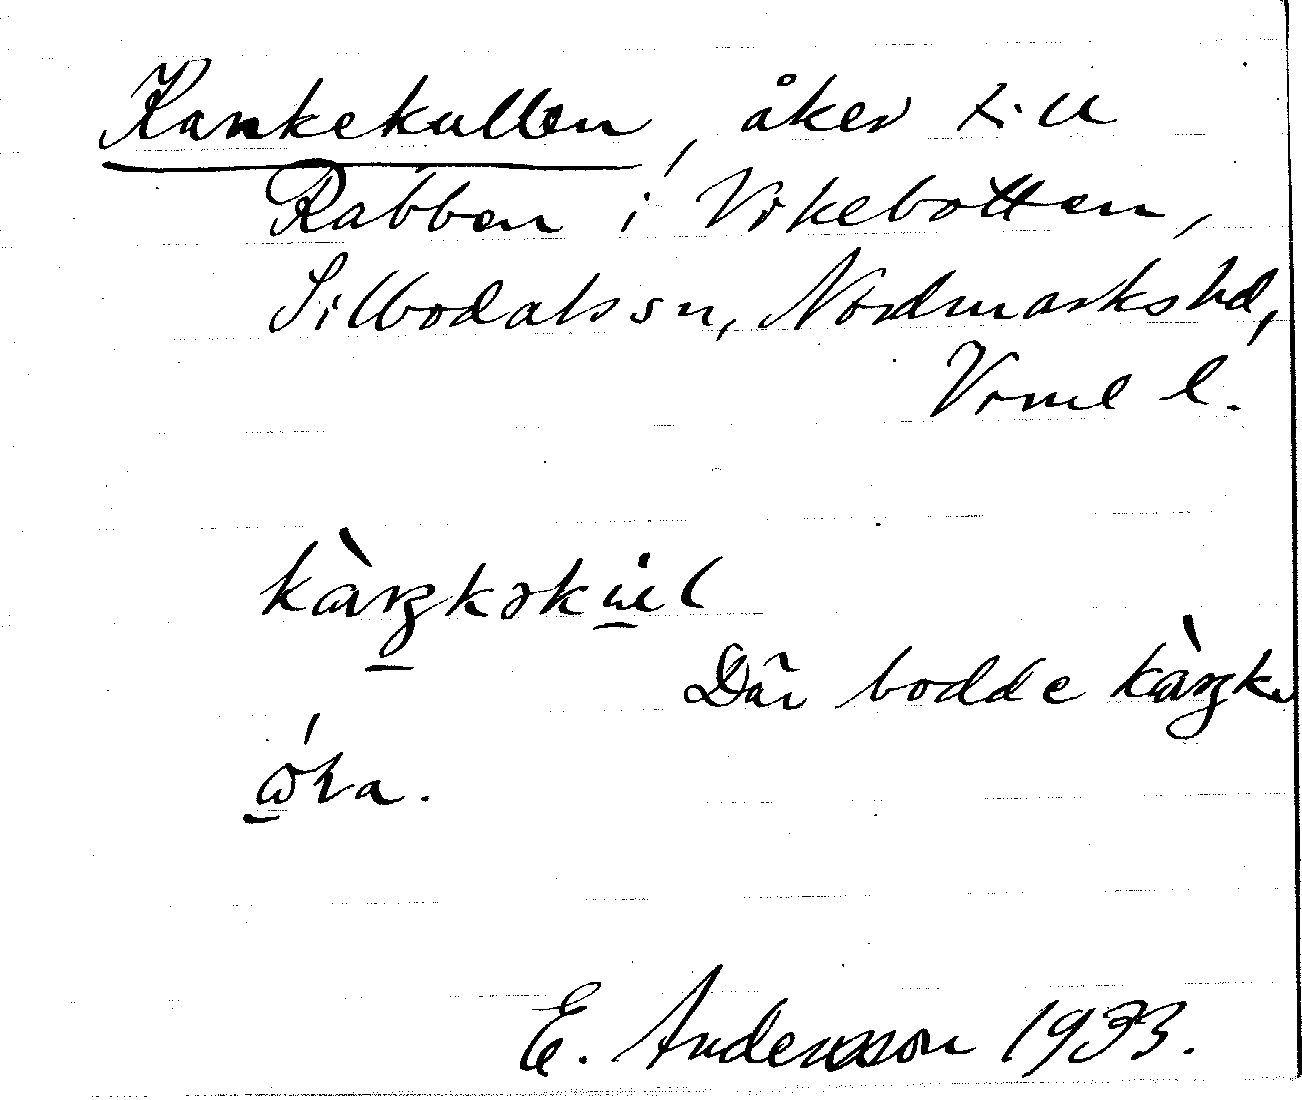 Kankekullen, åker till
Rabben i Vikebotten,
Silbodals sn, Nordmarks hd,
Vrml l.
kàŋkəkul
Där bodde kàŋk
.
E. Andersson 1933.